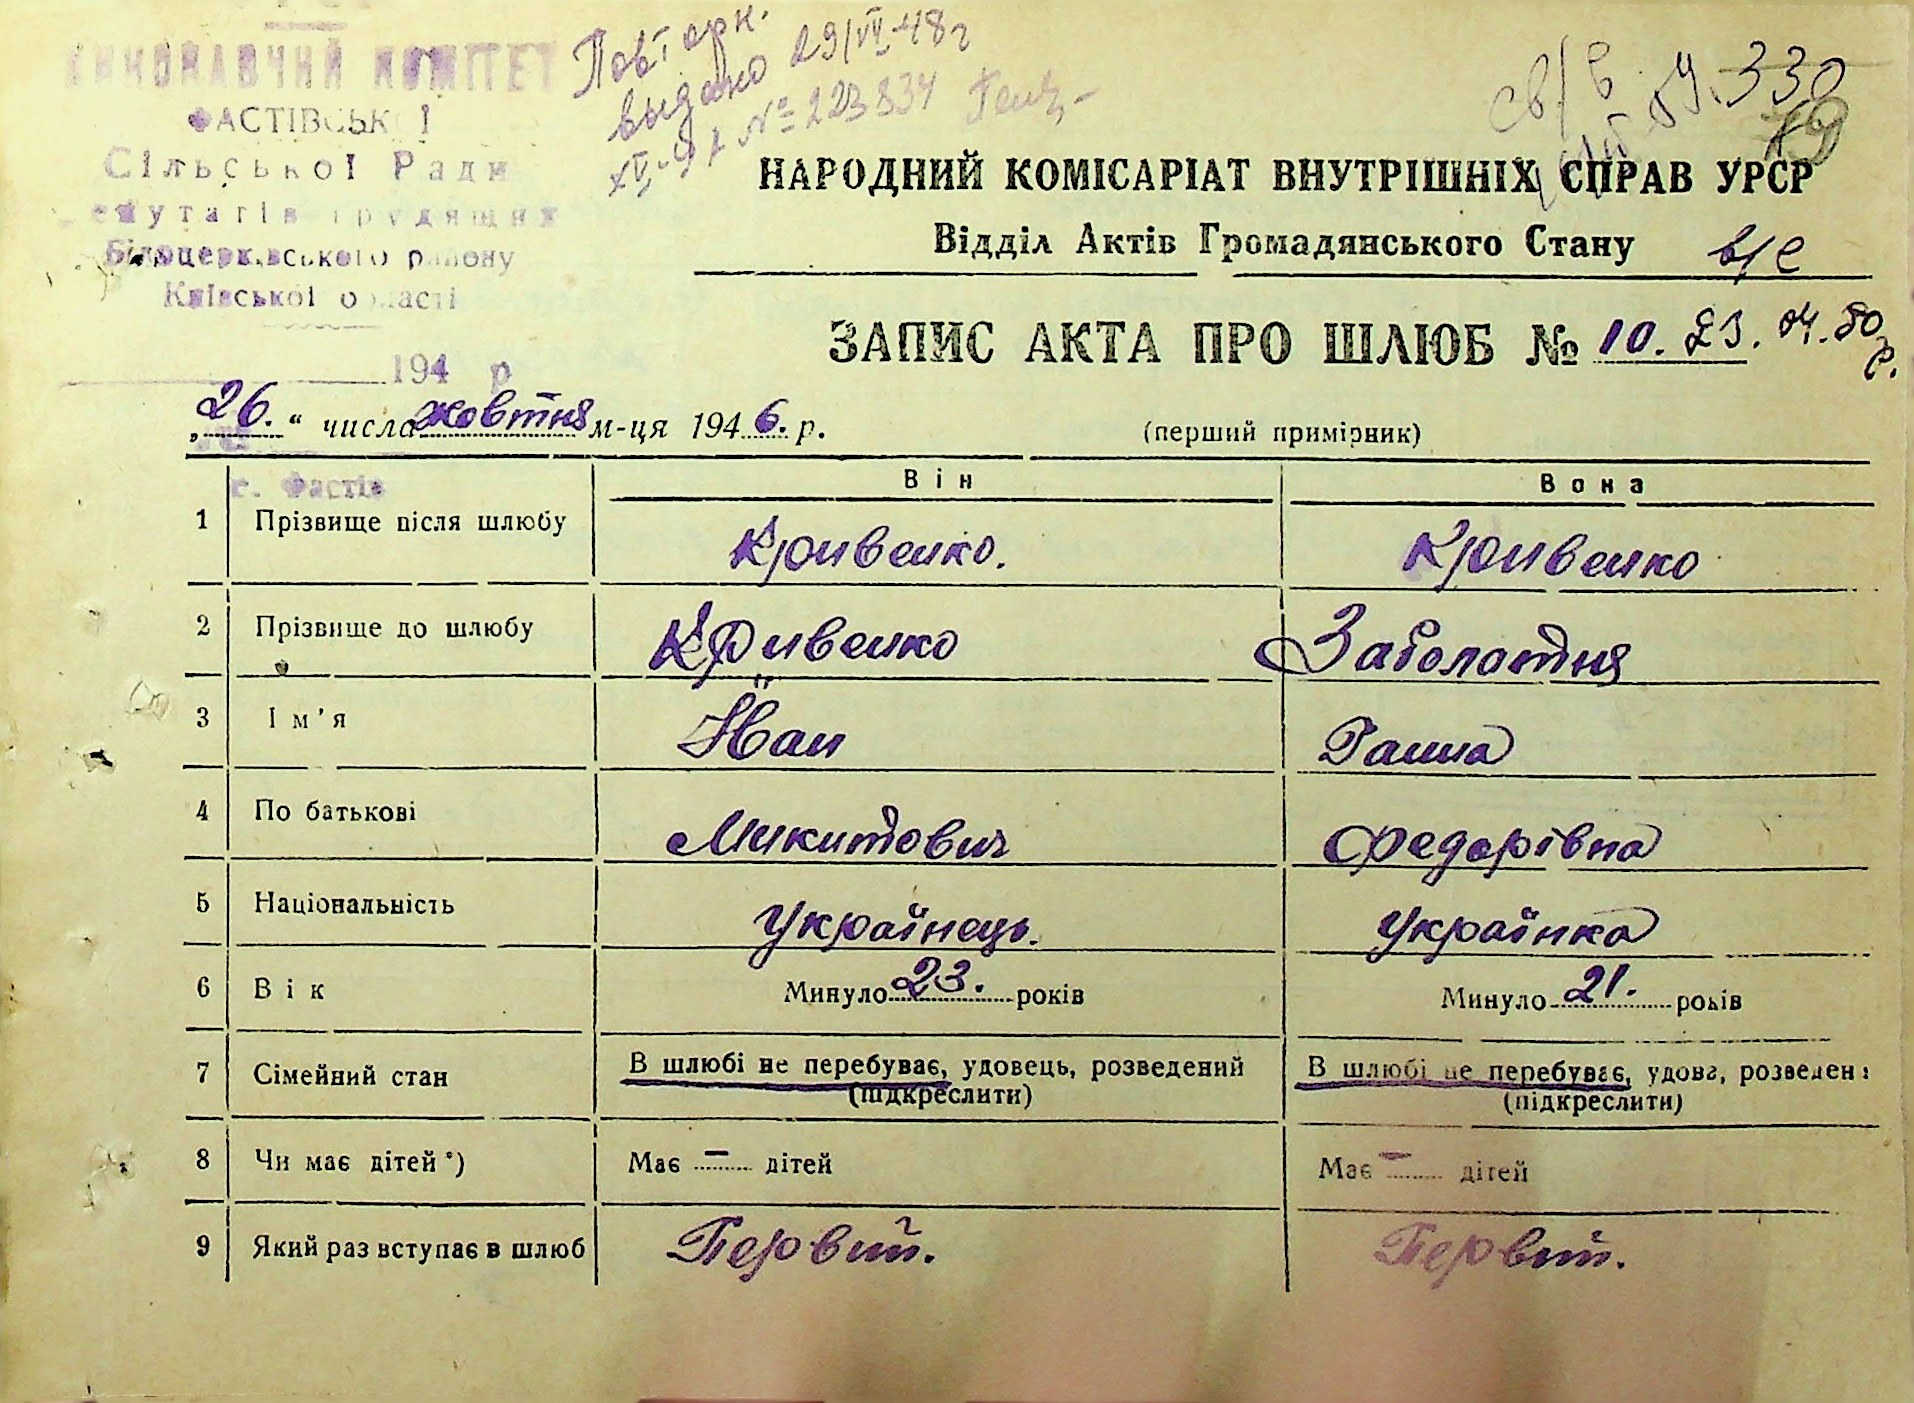 ВИКОНАВЧИЙ КОМІТЕТ
ФАСТІВСЬКОЇ
Сільської Ради
Депутатів трудящих
Білоцерківського району
Київської області
194 р
с. Фастів
Повторн.
выдано 29/VII-48 г
№ 223834
330
НАРОДНИЙ КОМІСАРІАТ ВНУТРІШНІХ СПРАВ УРСР
Відділ Актів Громадянського Стану в/с
ЗАПИС АКТА ПРО ШЛЮБ № 10. 23.04.80 р.
„26." числа жовтня м-ця 1946. р. (перший примірник)
Він Вона
1 Прізвище після шлюбу Кривенко. Кривенко
2 Прізвище до шлюбу Кривенко Заболотня
3 Ім'я Йван Ганна
4 По батькові Микитович Федорівна
5 Національність Українець. Українка
6 Вік Минуло 23. років Минуло 21. років
7 Сімейний стан В шлюбі не перебуває, удовець, розведений В шлюбі не перебуває, удова, розведена
(підкреслити) (підкреслити)
8 Чи має дітей*) Має – дітей Має – дітей
9 Який раз вступає в шлюб Первий. Первий.